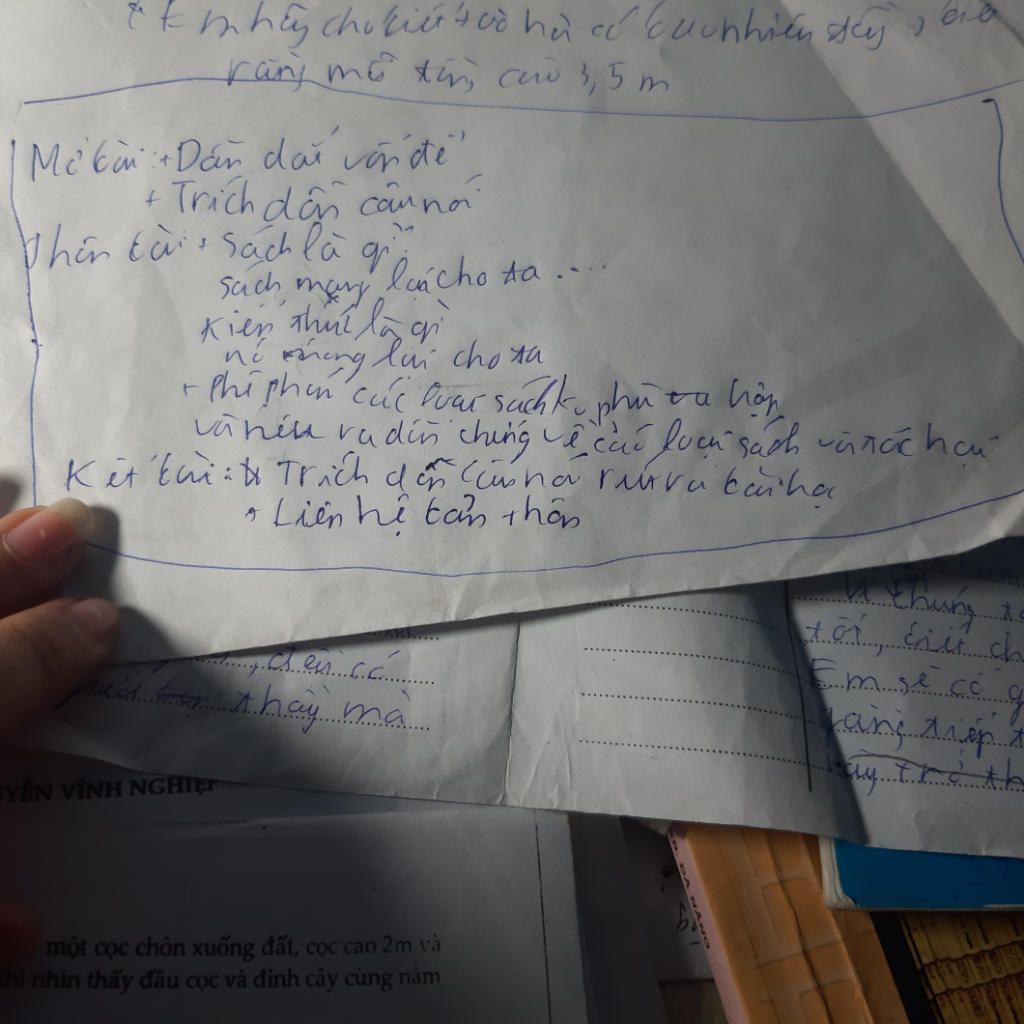 + Em hãy cho biết toà nhà có bao nhiêu tầng, biết
rằng mỗi tầng cao 3,5 m
Mở bài: + Dẫn dắt vấn đề
+ Trích dẫn câu nói
Thân bài + Sách là gì?
sách mang lại cho ta ....
Kiến thức là gì
nó mang lại cho ta
+ Phê phán các loại sách k phù hợp
và nêu ra dẫn chứng về các loại sách và tác hại
Kết bài: + Trích dẫn câu nói rút ra bài học
+ Liên hệ bản thân
, đến có
thầy mà
chúng ta
tới, biết ch
Em sẽ cố g
gàng tiếp t
hãy trở th
UYỄN VĨNH NGHIỆP
ĐÀ NẴNG
một cọc chôn xuống đất, cọc cao 2m và
thì nhìn thấy đầu cọc và đỉnh cây cùng nằm